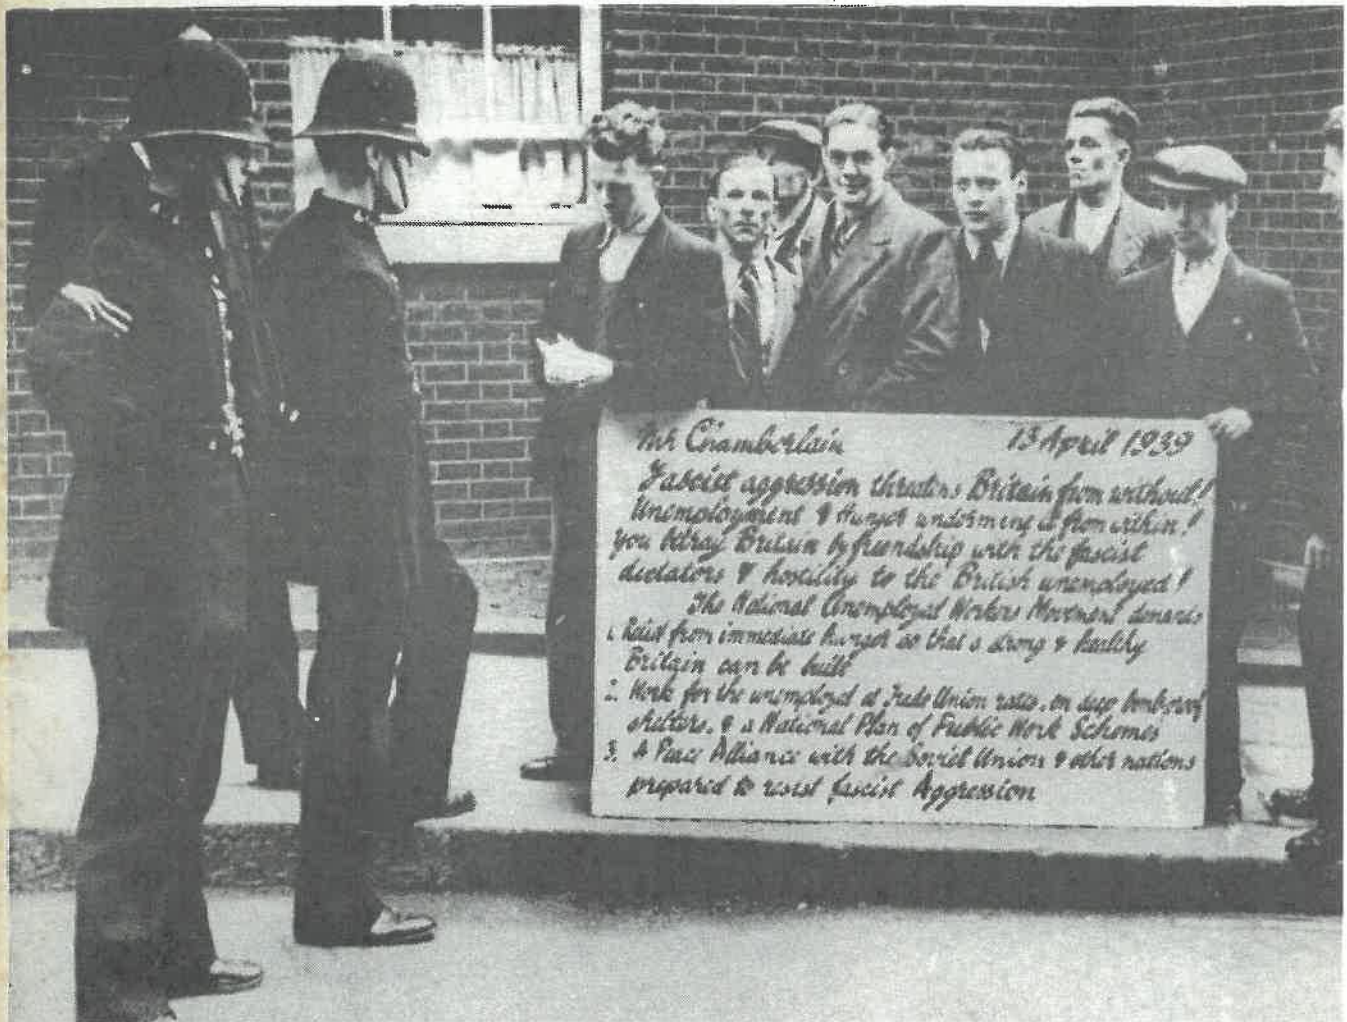 Mr Chamberlain 13 April 1939
Fascist aggression threatens Britain from without!
Unemployment & Hunger undermine it from within!
You betray Britain by friendship with the fascist
dictators & hostility to the British unemployed!
The National Unemployed Workers Movement demands
1. Relief from immediate hunger so that a strong & healthy
Britain can be built
2. Work for the unemployed at Trade Union rates, on deep bombproof
shelters, & a National Plan of Public Work Schemes
3. A Peace Alliance with the Soviet Union & other nations
prepared to resist fascist Aggression